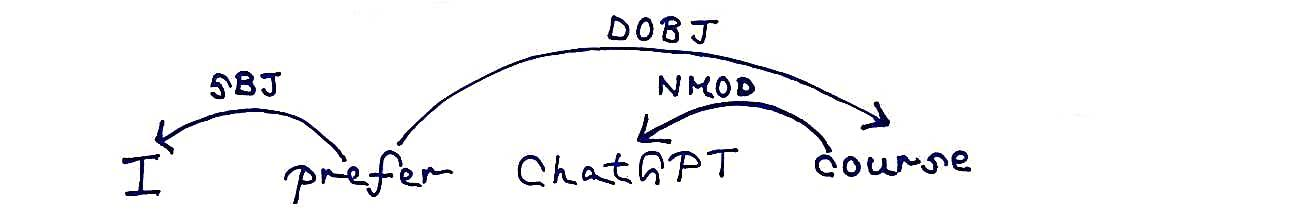 DOBJ
SBJ NMOD
I prefer ChatGPT course